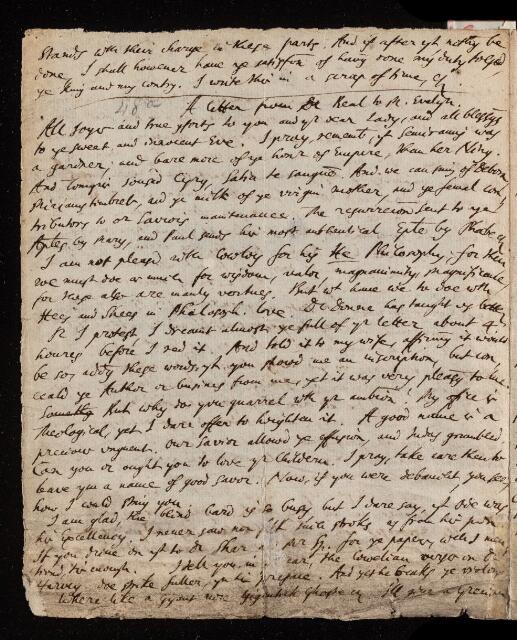 stands with their charge in these parts. And if after yt nothing be
done, I shall however have ye satisfaction of having done my duty to God,
ye King and my contry. I write this in a scrap of time, &c
A letter from Dr Beal to Mr. Evelyn.
All joys and true comforts to you and yr dear Lady, and all blessings
to ye sweet and innocent Eve. I pray, remember, yt Semiramis was
a gardner, and bare more of ye honr of Empire, than her Niny
And Tomyris soused Cyrus, Satia te sanguine. And we can sing of Debora
Miriams timbrels, and ye milk of ye virgin mother, and ye femal con
tributors to or Saviors maintenance. The resurrexion sent to ye
Aples by Mary, and Paul sends his most authentical Epte by Phabe
I am not pleased with Cowley for his He Philosophy, for then
we must doe as much for wisdom, valor, magnanimity, magnificence
for these also are manly vertues. But wt have we to doe with
Hees and Shees in Philosoph. love. Dr Donne has taught us better
Sr I protest I dreamt almost ye full of yr letter, about 4
houres before I read it. And told it to my wife, affirming it would
be so; adding these words, yt you showd me an inscription, but con
ceald ye Author or business from me, yet it was very pleasing to me.
But why doe you quarrel wth yr ambition? My office is
Theological, yet I dare offer to heighten it. A good name is a
precious unguent. Our Savior allowd ye effusion, and Judas grumbled.
Can you or ought you to love yr children. I pray, take care then to
leave ym a name of good savor. Now, if you were debauched, you see,
how I could sting you.
I am glad, the blind bard is so busy, but I dare say, yt Ode was
his excellency. I never saw
If you drive on yt to Dr Shar for ye papers,
tired him enough. I tell you, in
Harvey doe strike fuller, yn his preface. And yet he breaks ye
Where like a gyant